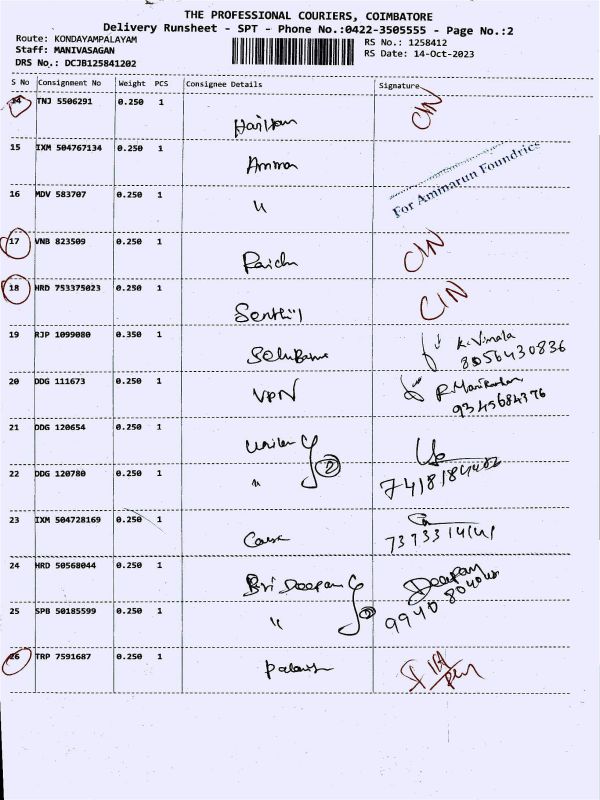 THE PROFESSIONAL COURIERS, COIMBATORE
Delivery Runsheet - SPT - Phone No.:0422-3505555 - Page No.:2
Route: KONDAYAMPALAYAM
Staff: MANIVASAGAN
DRS No.: DCJB125841202
RS No.: 1258412
RS Date: 14-Oct-2023
S No Consignment No Weight PCS Consignee Details Signature
14 TNJ 5506291 0.250 1 CIN
15 IXM 504767134 0.250 1 Amman For Ammarun Foundries
16 MDV 583707 0.250 1 "
17 VNB 823509 0.250 1 CIN
18 HRD 753375023 0.250 1 Senthil CIN
19 RJP 1099080 0.350 1 K. Vimala
8056430836
20 DDG 111673 0.250 1 VPN R. Manikandan
9345684376
21 DDG 120654 0.250 1
22 DDG 120780 0.250 1 " 2
23 IXM 504728169 0.250 1
24 HRD 50568044 0.250 1 Sri Deepam Deepam
25 SPB 50185599 0.250 1 " 2 9940
26 TRP 7591687 0.250 1